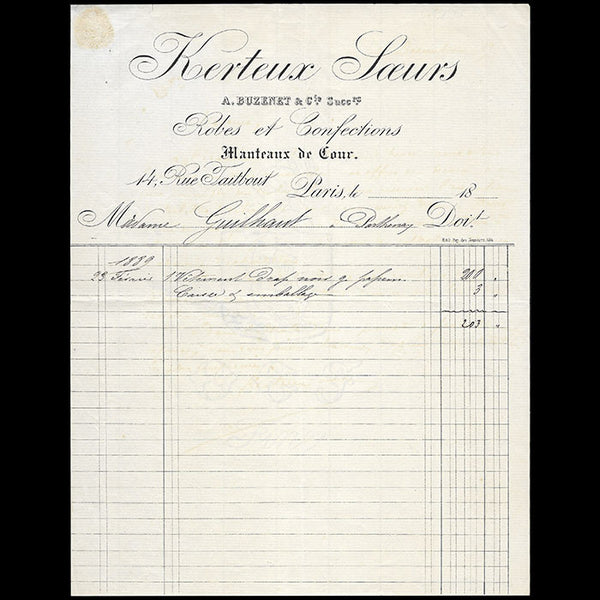 Kerteux Sœurs
A. BUZENET & Cie Succrs
Robes et Confections
Manteaux de Cour.
14, Rue Taitbout Paris, le 18
Madame Guilhaut à Parthenay Doit
1889
23 Février 1 Vêtement drap noir 200 "
Caisse & emballage 3 "
203 "